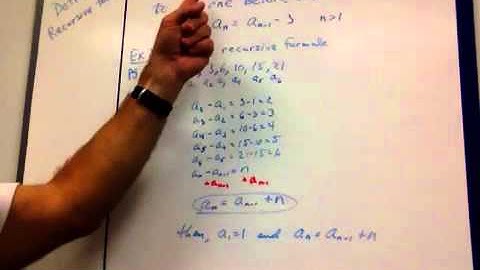 Def
Recursive
to define before
aₙ = aₙ₋₁ - 3 n>1
Ex recursive formula
3, 6, 10, 15, 21
a₂ a₃ a₄ a₅ a₆
a₂ - a₁ = 3-1 = 2
a₃ - a₂ = 6-3 = 3
a₄ - a₃ = 10-6 = 4
a₅ - a₄ = 15-10 = 5
a₆ - a₅ = 21-15 = 6
aₙ - aₙ₋₁ = n
+aₙ₋₁ +aₙ₋₁
aₙ = aₙ₋₁ + n
then, a₁=1 and aₙ = aₙ₋₁ + n